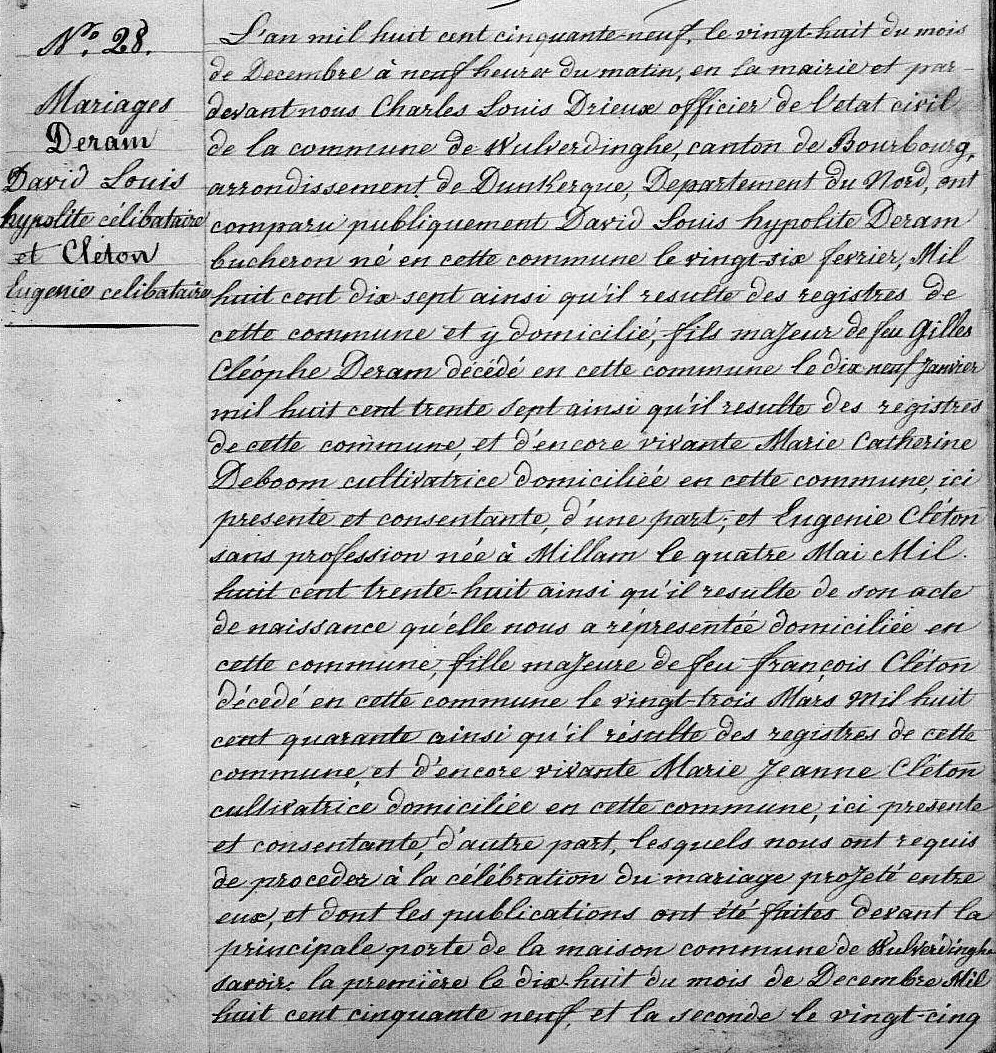 N.o 28.
Mariages
Deram
David Louis
hypolite célibataire
et Cleton
Eugenie celibataire
L'an mil huit cent cinquante-neuf, le vingt-huit du mois
de Decembre à neuf heures du matin, en la mairie et par-
devant nous Charles Louis Drieux officier de l'etat civil
de la commune de Wulverdinghe, canton de Bourbourg,
arrondissement de Dunkerque, Departement du Nord, ont
comparu publiquement David Louis hypolite Deram
bucheron né en cette commune le vingt-six fevrier, Mil
huit cent dix sept ainsi qu'il resulte des registres de
cette commune et y domicilié, fils majeur de feu Gilles
Cléophe Deram décédé en cette commune le dix neuf Janvier
mil huit cent trente sept ainsi qu'il resulte des registres
de cette commune, et d'encore vivante Marie Catherine
Deboom cultivatrice domiciliée en cette commune, ici
presente et consentante, d'une part; et Eugenie Cléton
sans profession née à Millam le quatre Mai Mil
huit cent trente-huit ainsi qu'il resulte de son acte
de naissance qu'élle nous a réprésentée domiciliée en
cette commune, fille majeure de feu françois Cléton
décedé en cette commune le vingt-trois Mars Mil huit
cent quarante ainsi qu'il résulte des registres de cette
commune, et d'encore vivante Marie Jeanne Cleton
cultivatrice domiciliée en cette commune, ici presente
et consentante, d'autre part, lesquels nous ont requis
de proceder à la célébration du mariage projeté entre
eux, et dont les publications ont été faites devant la
principale porte de la maison commune de Wulverdinghe
savoir: la première le dix-huit du mois de Decembre Mil
huit cent cinquante neuf, et la seconde le vingt-cinq